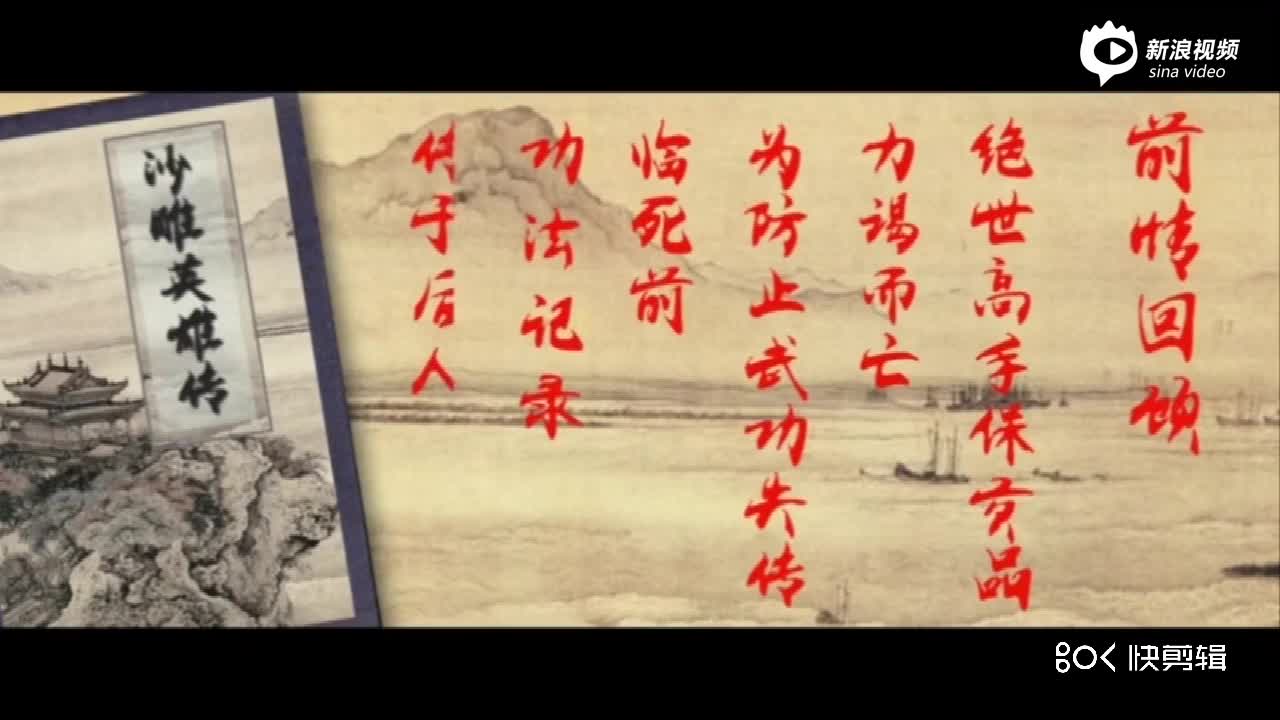 新浪视频
sina video
前情回顾
绝世高手保贡品
力竭而亡
为防止武功失传
临死前
功法记录
付于后人
沙雕英雄传
快剪辑